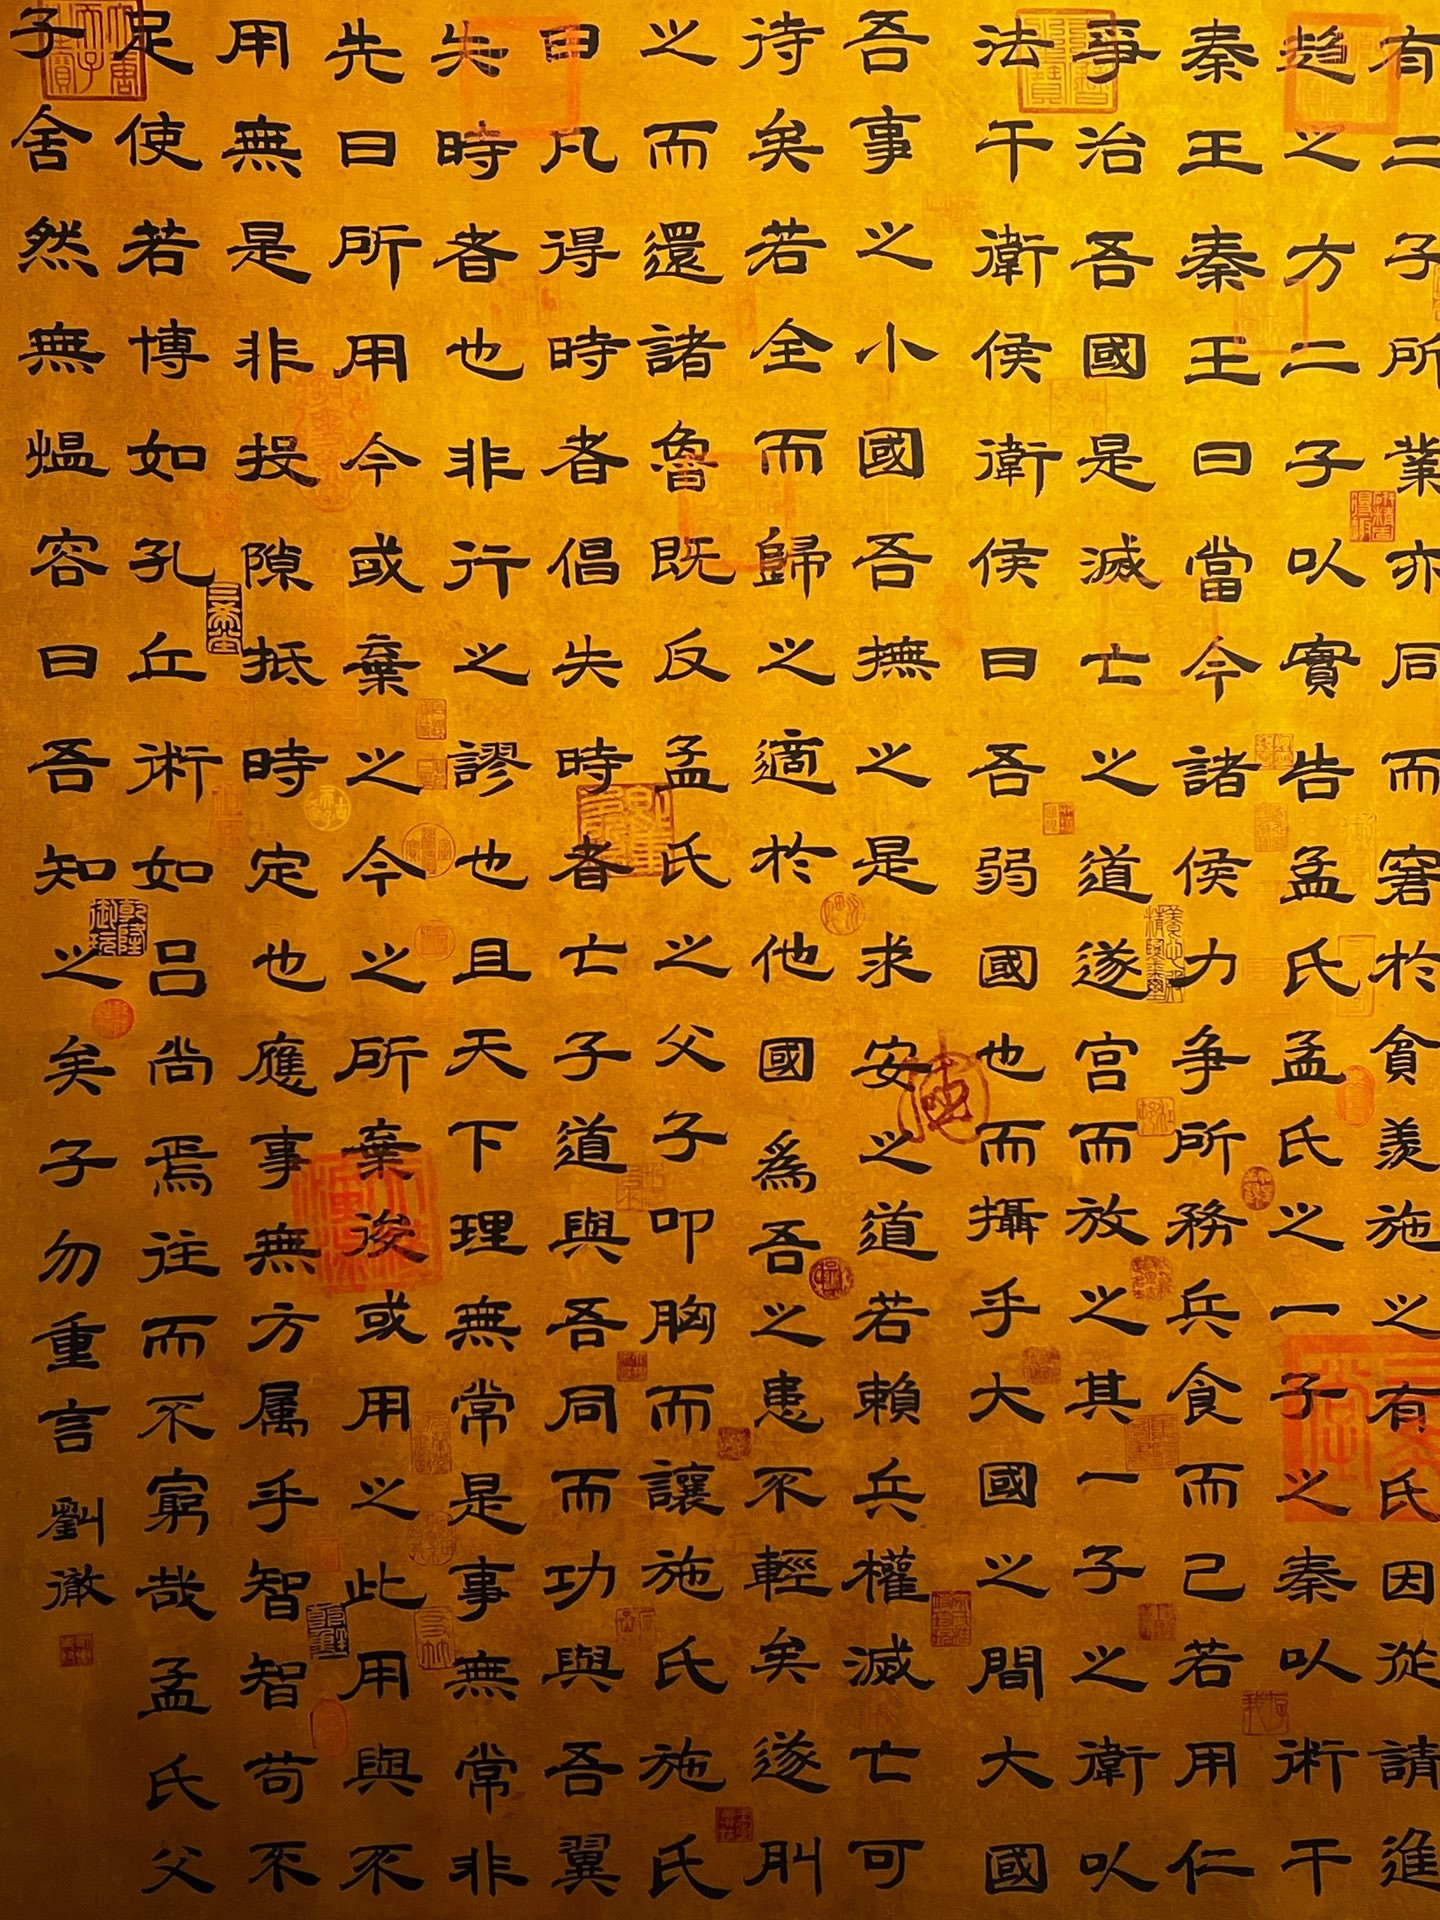 有二子所業亦同而窘於貧羨施之有氏因從請進
趍之方二子以實告孟氏孟氏之一子之秦以術干
秦王秦王曰當今諸侯力争所務兵食而己若用仁
爭治吾國是滅亡之道遂宫而放之其一子之衛以
法干衛侯衛侯曰吾弱國也而攝乎大國之間大國
吾事之小國吾撫之是求安之道若賴兵權滅亡可
待矣若全而歸之適於他國為吾之患不輕矣遂刖
之而還諸魯既反孟氏之父子叩胸而讓施氏施氏
曰凡得時者倡失時者亡子道與吾同而功與吾翼
失時者也非行之謬也且天下理無常是事無常非
先日所用今或棄之今之所棄後或用之此用與不
用無是非投隙抵時定也應事無方属乎智智苟不
足使若博如孔丘術如吕尚焉往而不窮哉孟氏父
子舍然無愠容曰吾知之矣子勿重言 劉徹